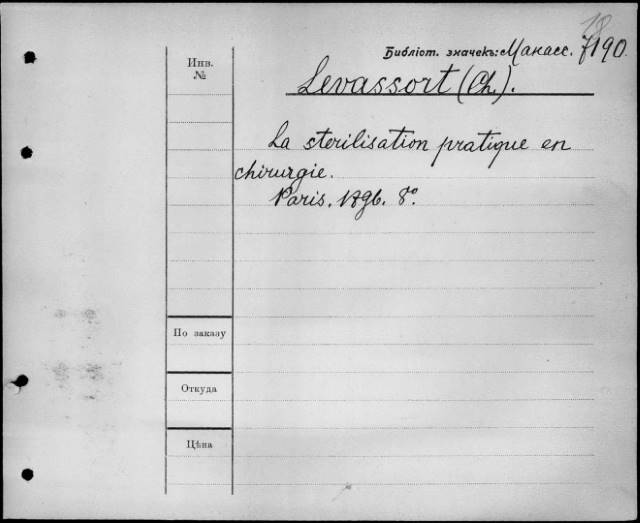 Библіот. значекъ: Манасс. 7190.
Инв.
№
Levassort (Ch.).
La sterilisation pratique en
chirurgie.
Paris. 1896. 8°.
По заказу
Откуда
Цѣна